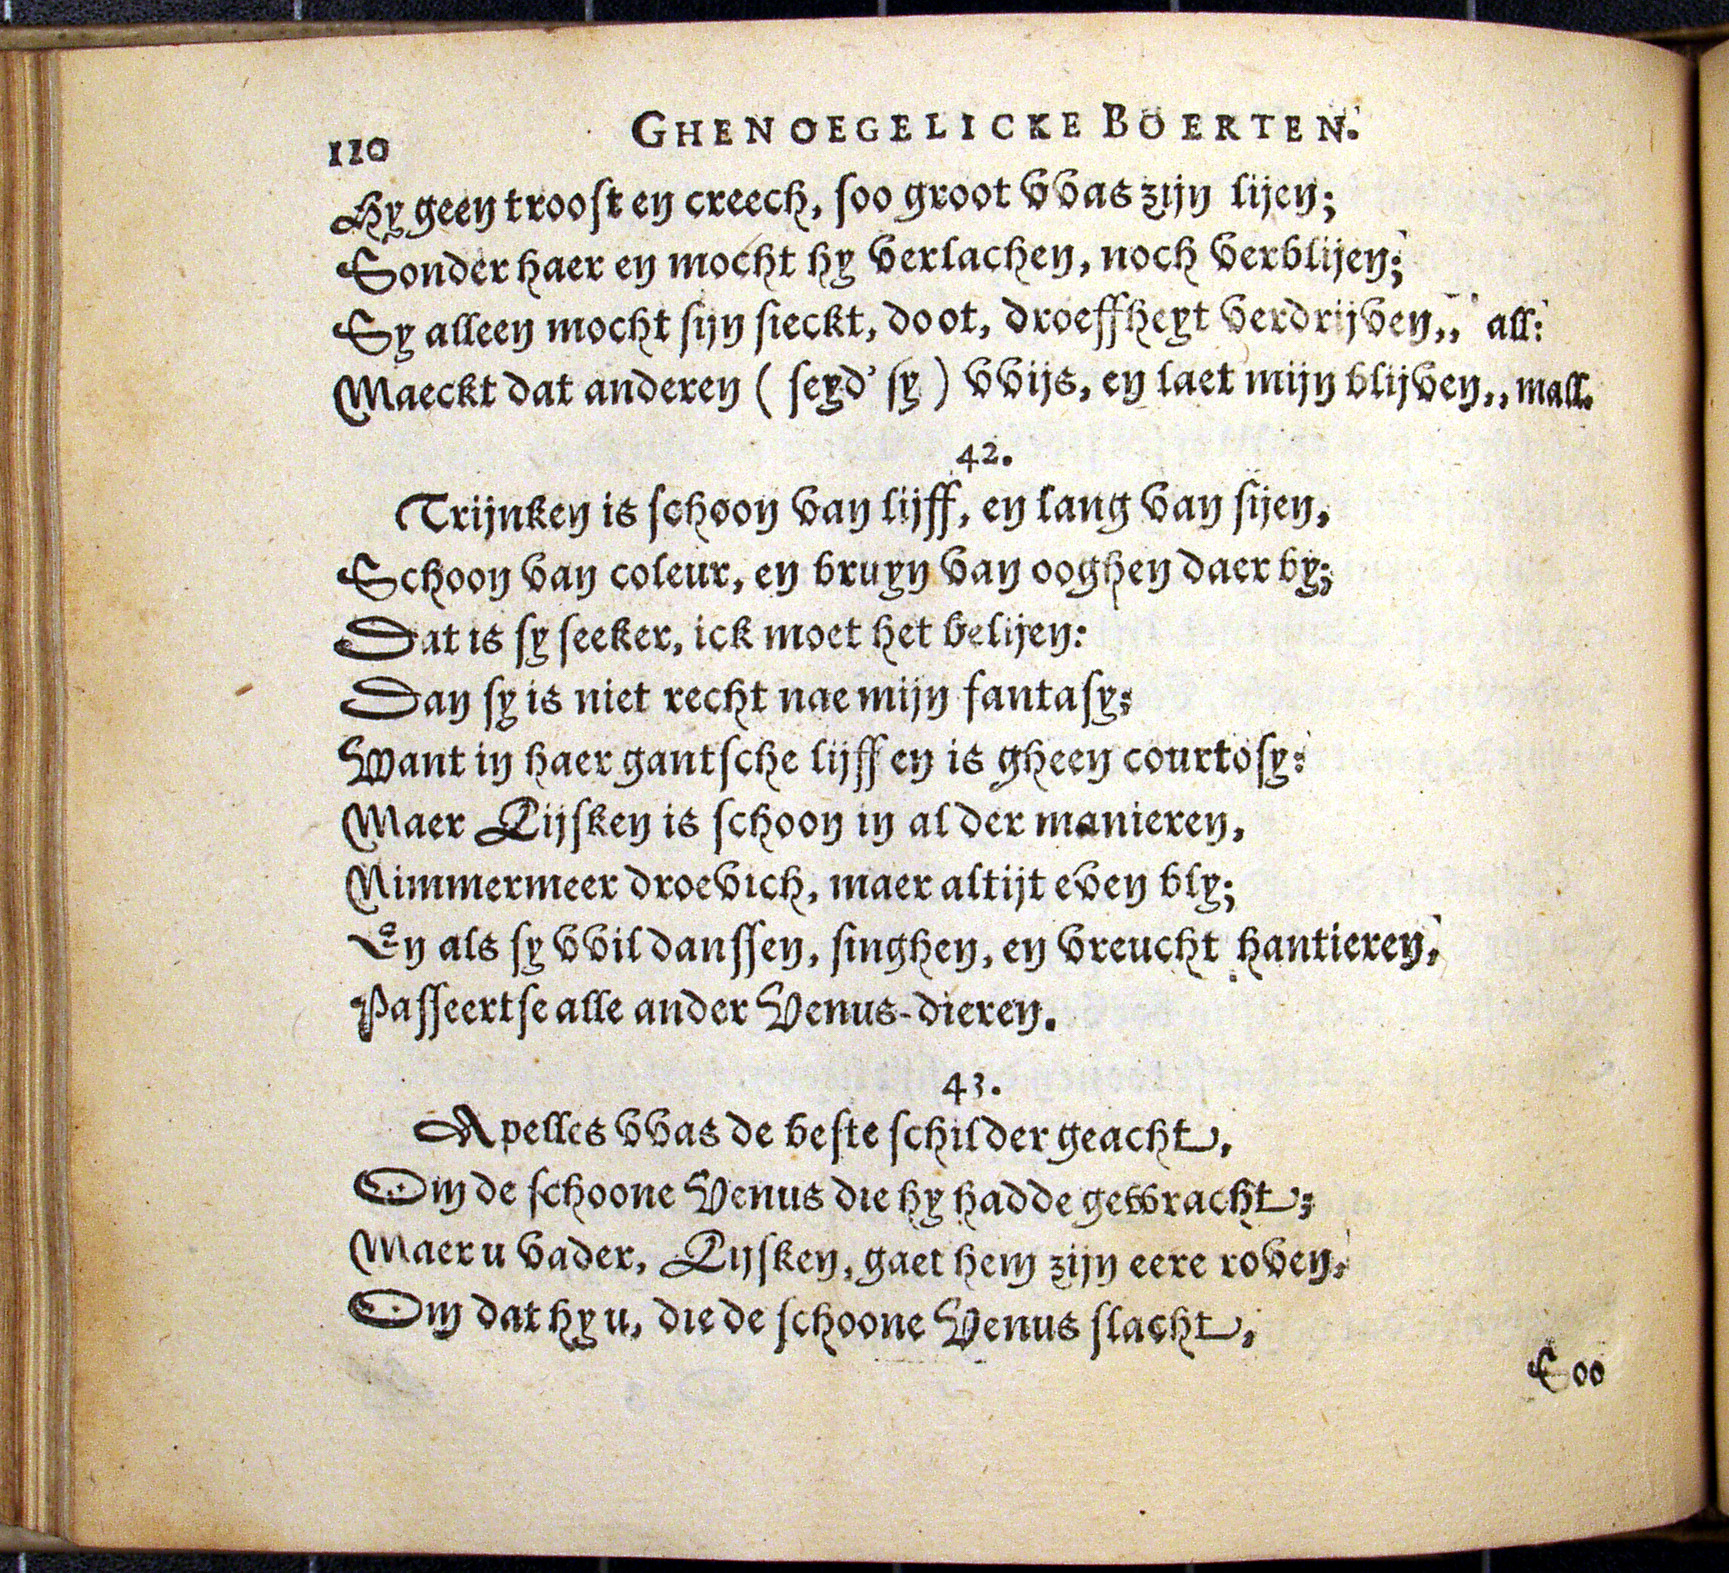 110 GHENOEGELICKE BOERTEN.
Hy geen troost en creech, soo groot vvas zijn lijen;
Sonder haer en mocht hy verlachen, noch verblijen;
Sy alleen mocht sijn sieckt, doot, droeffheyt verdrijven,, all:
Maeckt dat anderen ( seyd' sy ) vvijs, en laet mijn blijven,, mall.
42.
Trijnken is schoon van lijff, en lang van sijen,
Schoon van coleur, en bruyn van ooghen daer by;
Dat is sy seeker, ick moet het belijen:
Dan sy is niet recht nae mijn fantasy;
Want in haer gantsche lijff en is gheen courtosy:
Maer Lijsken is schoon in al der manieren,
Nimmermeer droevich, maer altijt even bly;
En als sy vvil danssen, singhen, en vreucht hantieren,
Passeertse alle ander Venus-dieren.
43.
Apelles vvas de beste schilder geacht,
Om de schoone Venus die hy hadde gewracht;
Maer u vader, Lijsken, gaet hem zijn eere roven,
Om dat hy u, die de schoone Venus slacht,
Soo